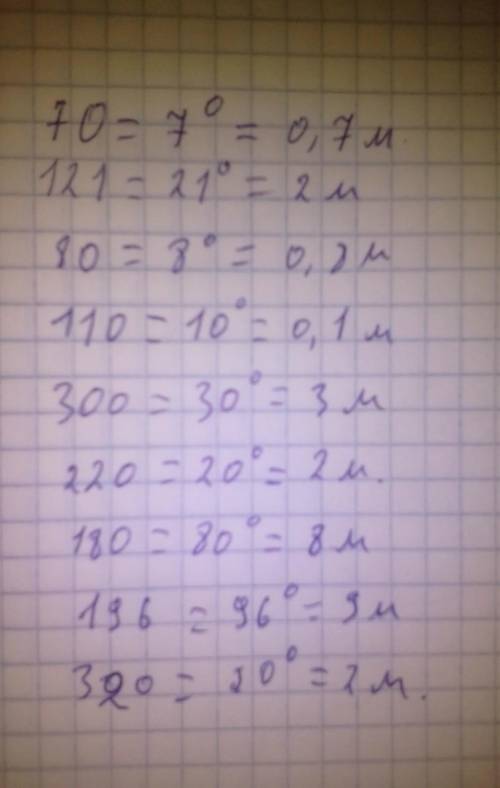 70 = 7° = 0,7 м.
121 = 21° = 2 м
80 = 8° = 0,2 м
110 = 10° = 0,1 м
300 = 30° = 3 м
220 = 20° = 2 м.
180 = 80° = 8 м
196 = 96° = 9 м
320 = 20° = 2 м.